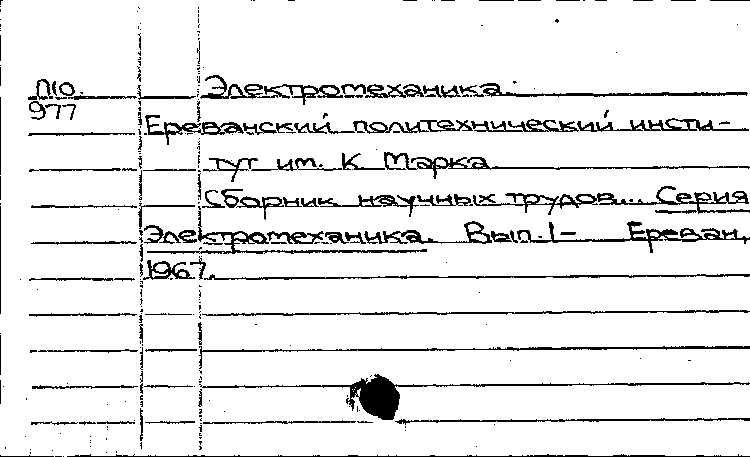 П10. Электромеханика.
977
Ереванский политехнический инсти-
тут им. К Маркa
Сборник научных трудов... Серия
Электромеханика. Вып. 1- Ереван,
1967.